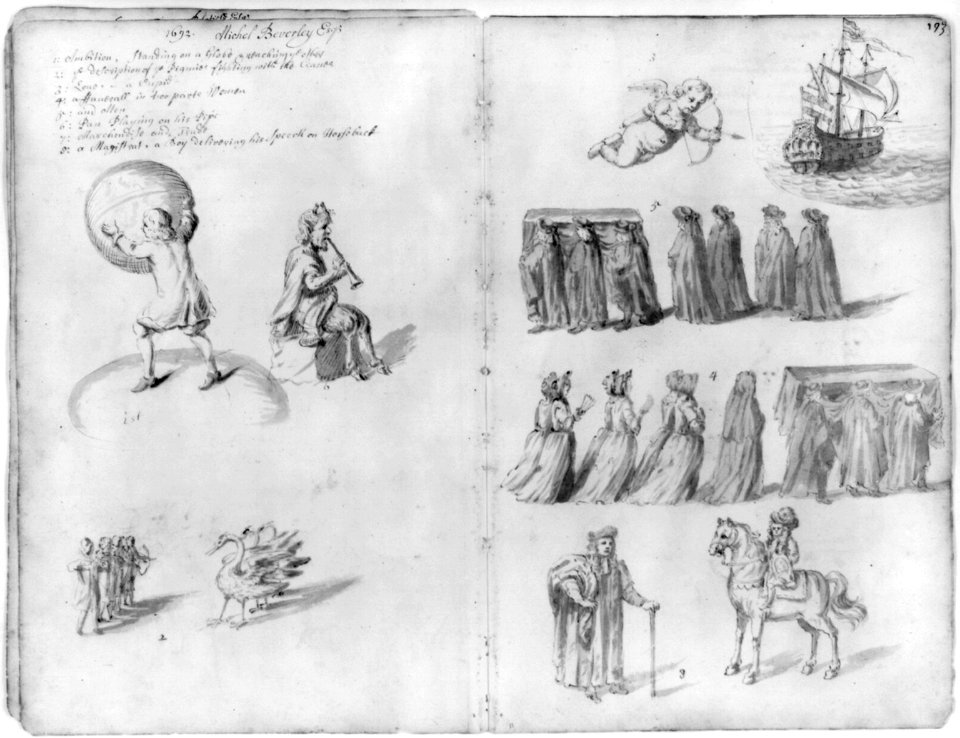 1692. Michel Beverley Esqr
1: Ambition, standing on a Globe & reaching ye other
2: ye description of ye Pigmies fighting with the Cranes
3: Love - a Cupid
4: a Funerall in two parts Women
5: and Men
6: Pan Playing on his Pipe
7: Marchandise and Trade
8: a Magistrat, a Boy delivering his speech on Horseback
193
1st
2
3
5
4